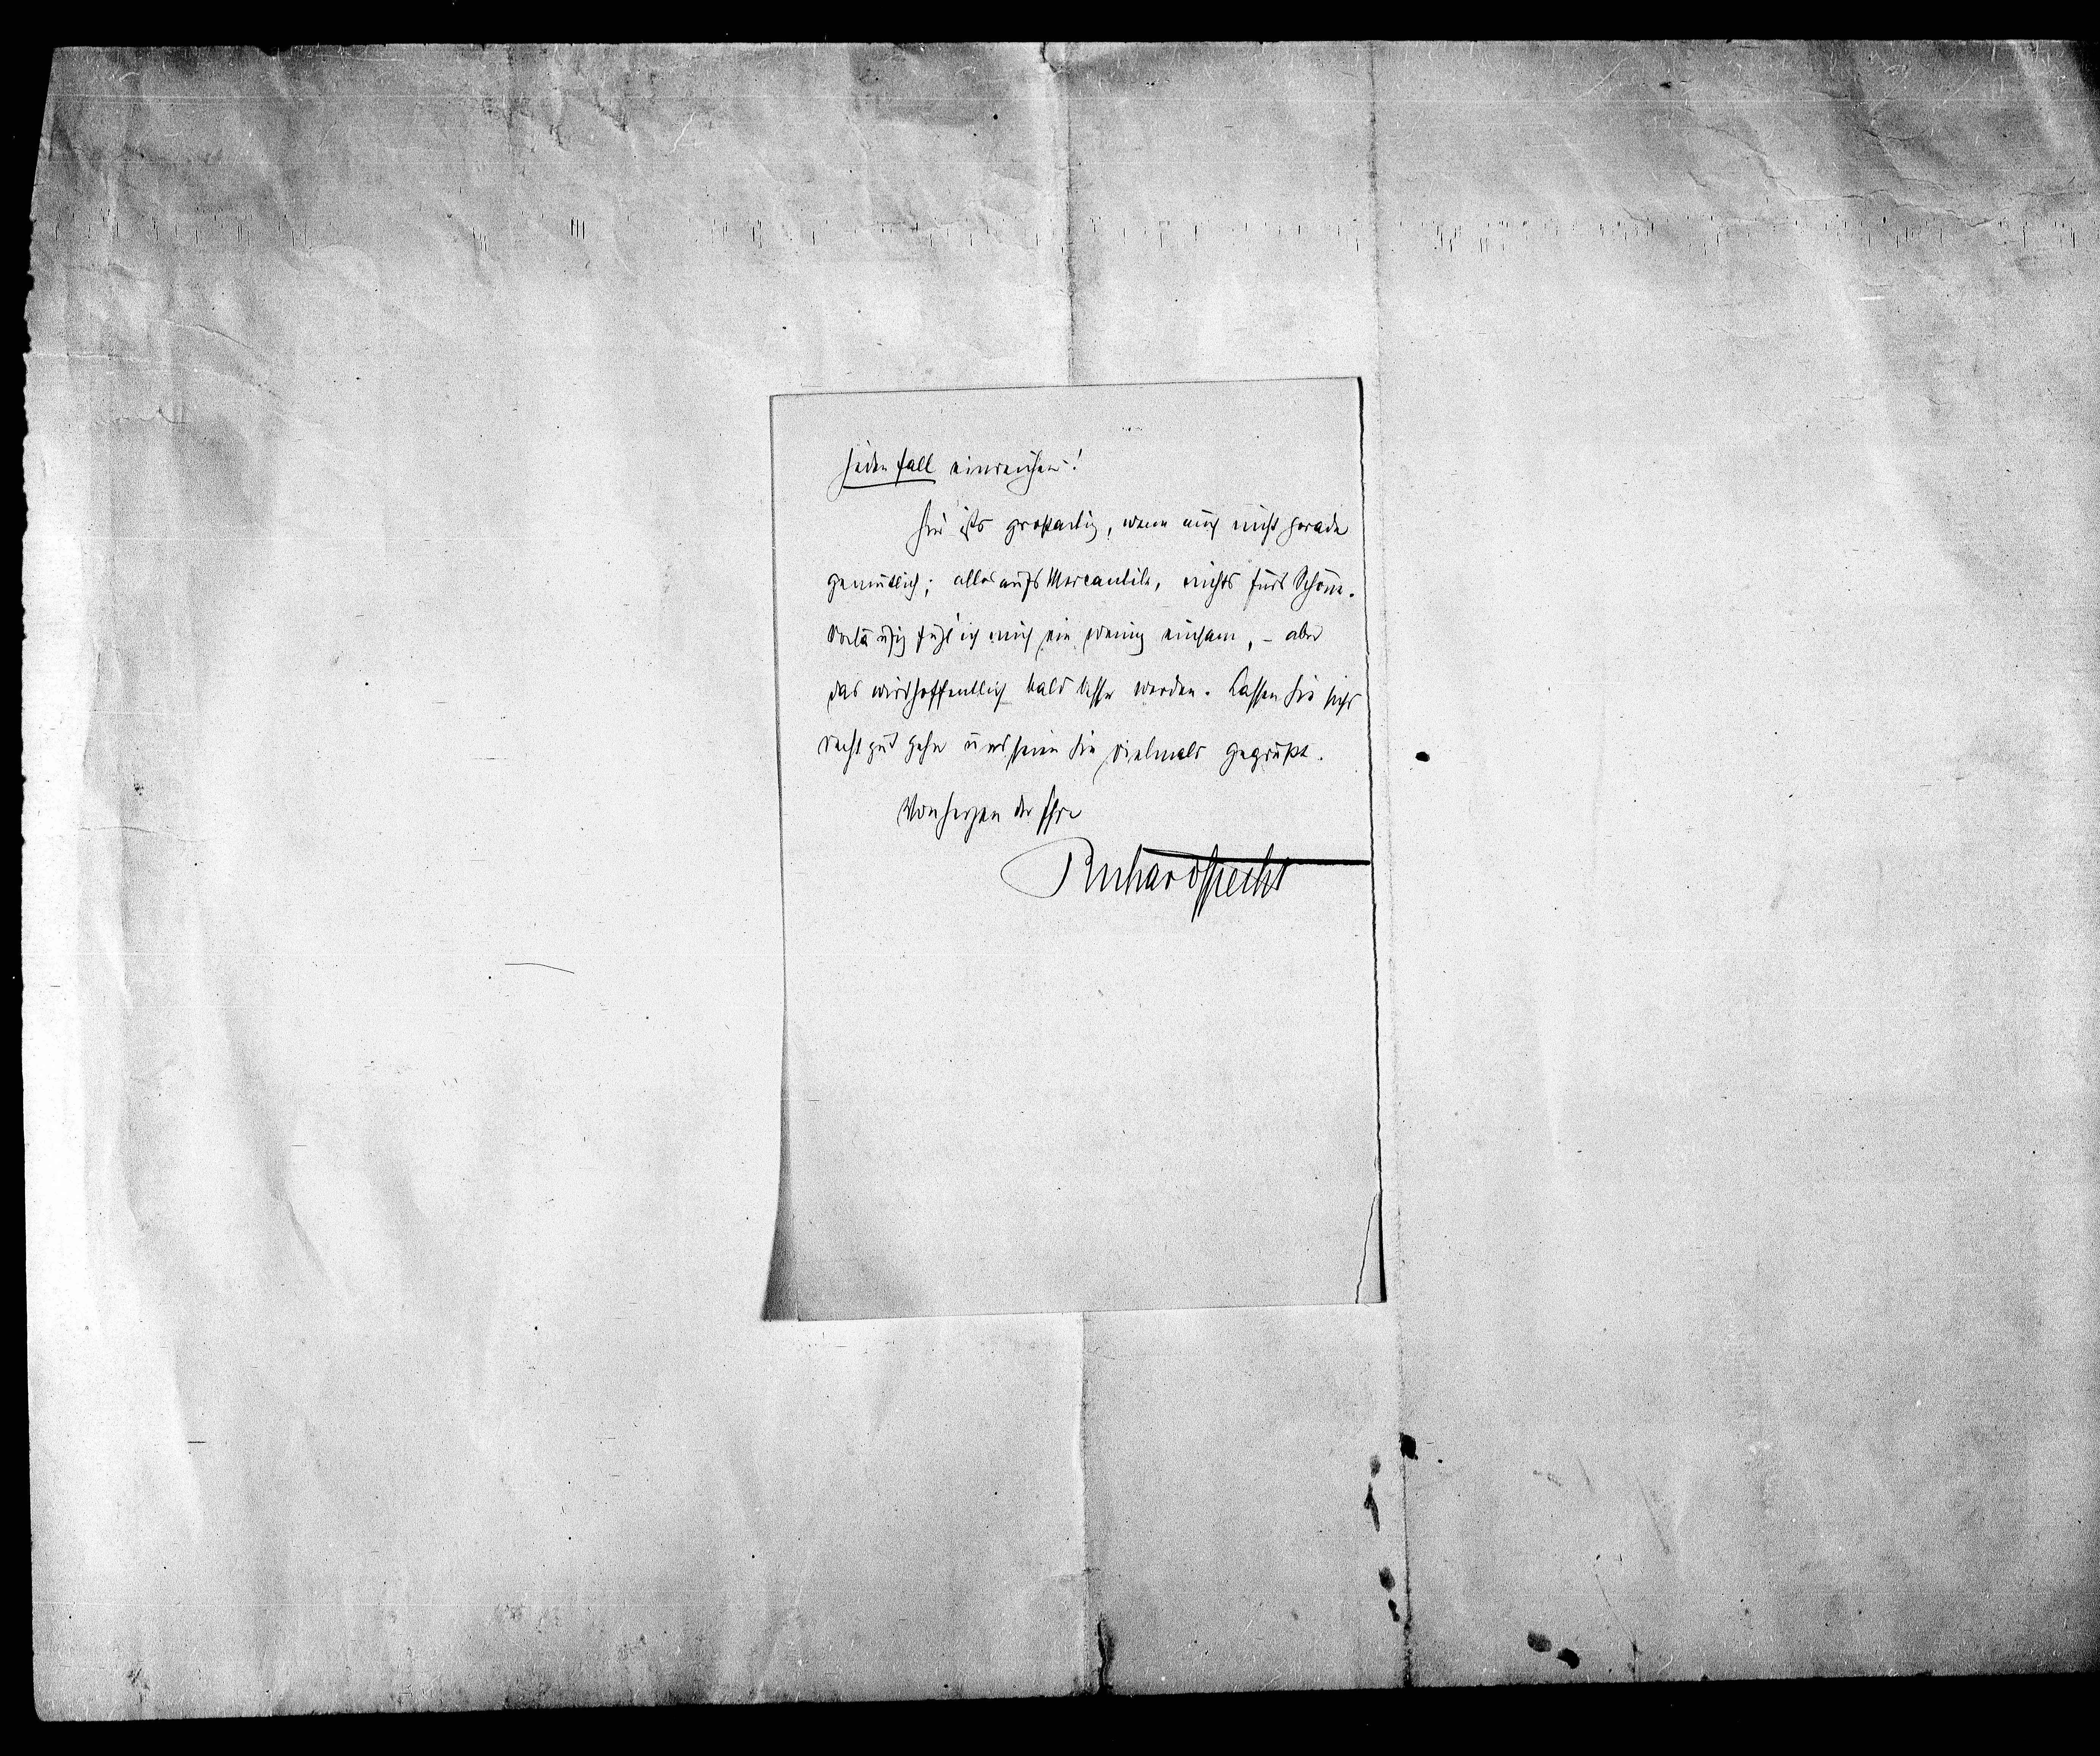 jeden Fall einreichen!
Hier ists großartig, wenn auch nicht gerade
gemütlich; alles aufs Mercantile, nichts fürs Schöne.
Vorläufig fühl' ich mich ein wenig einsam, – aber
das wird hoffentlich bald besser werden. Lassen Sie sichs
recht gut gehn und seien Sie vielmals gegrüßt.
Von Herzen der Ihre
Richard Specht